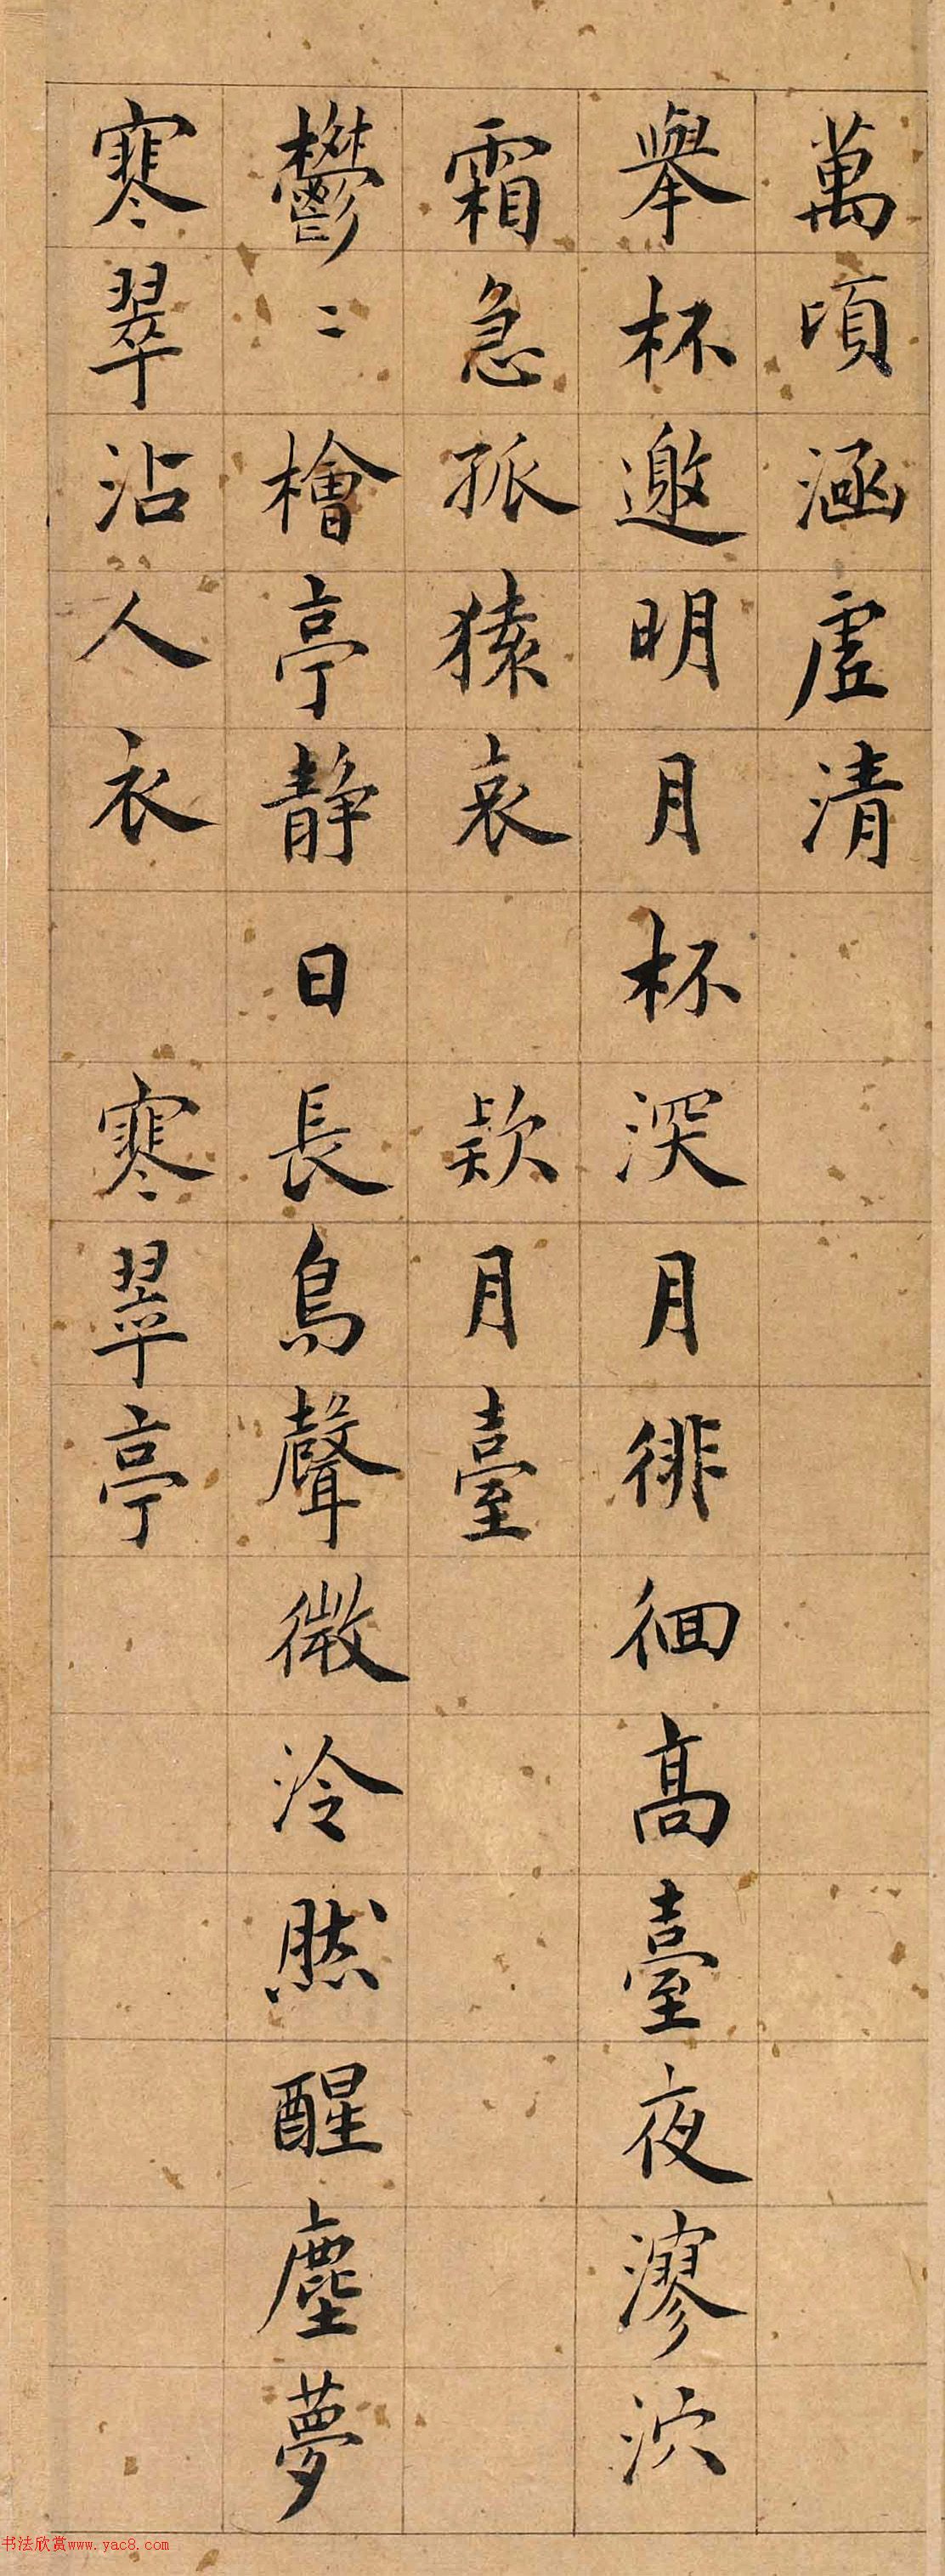 萬頃涵虛清
舉杯邀明月杯深月徘徊高臺夜漻泬
霜急孤猿哀 款月臺
鬱〻檜亭靜日長鳥聲微泠然醒塵夢
寒翠沾人衣 寒翠亭
书法欣赏www.yac8.com